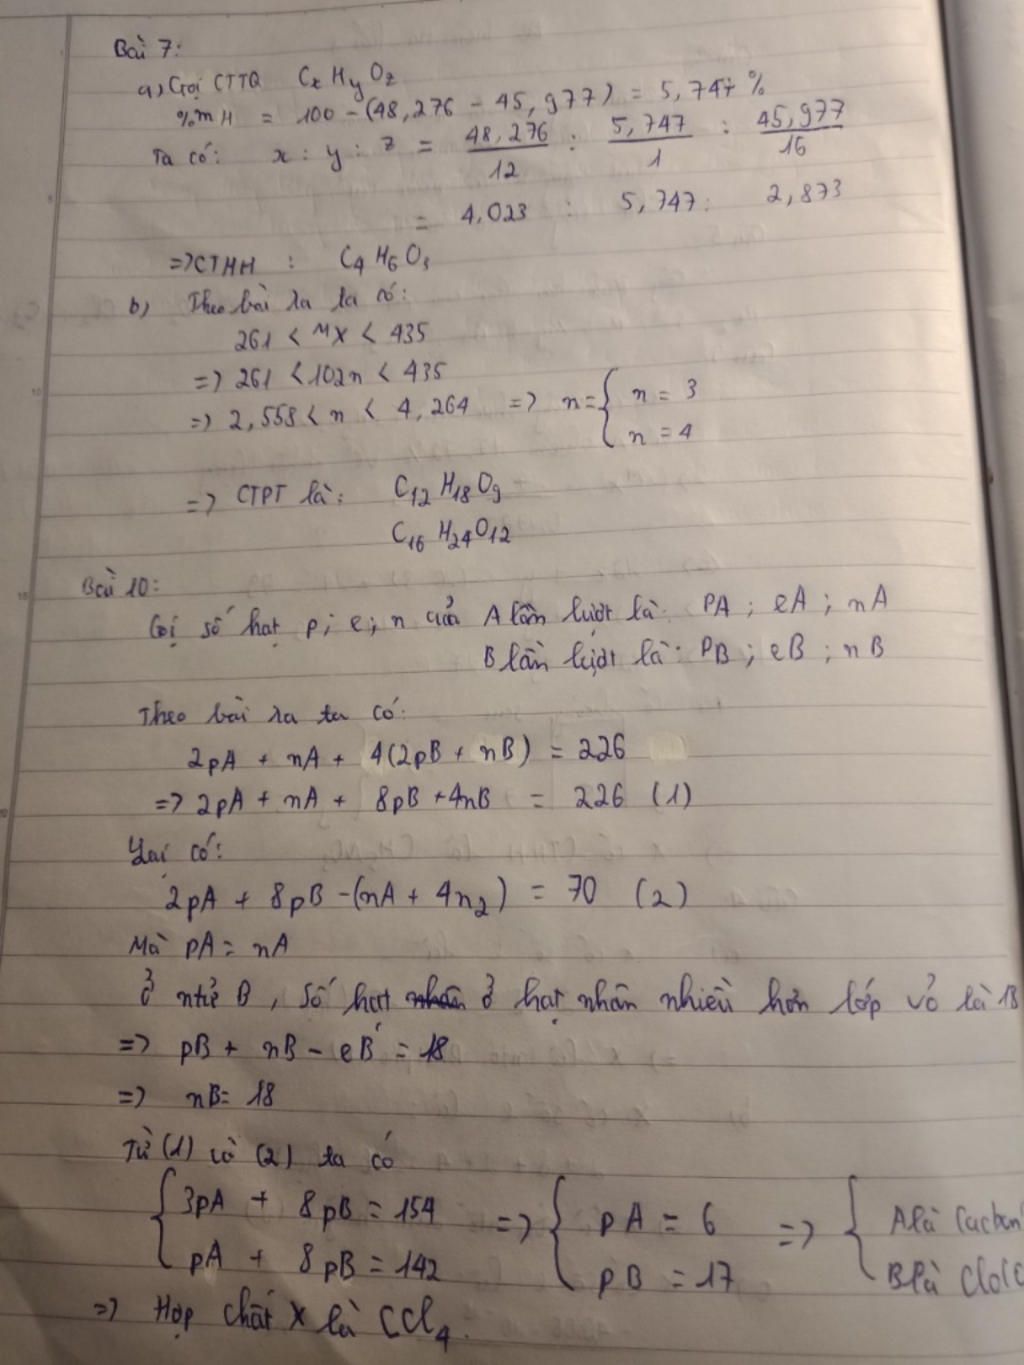 Bài 7:
a) Gọi CTTQ CxHyOz
%mH = 100 - (48,276 - 45,977) = 5,747 %
Ta có: x : y : z = 48,276/12 : 5,747/1 : 45,977/16
= 4,023 : 5,747 : 2,873
=> CTHH : C4H6O3
b) Theo bài ra ta có:
261 < MX < 435
=> 261 < 102n < 435
=> 2,558 < n < 4,264 => n = { n = 3
n = 4
=> CTPT là: C12H18O9
C16H24O12
Bài 10:
Gọi số hạt p; e; n của A lần lượt là: PA; eA; nA
B lần lượt là: PB; eB; nB
Theo bài ra ta có:
2pA + nA + 4(2pB + nB) = 226
=> 2pA + nA + 8pB + 4nB = 226 (1)
Lại có:
2pA + 8pB - (nA + 4n2) = 70 (2)
Mà pA = nA
Ở ntử B, số hạt ở hạt nhân nhiều hơn lớp vỏ là 18
=> pB + nB - eB = 18
=> nB = 18
Từ (1) và (2) ta có
{ 3pA + 8pB = 154 => { pA = 6 => { A là Cacbon
pA + 8pB = 142 pB = 17 B là Clo
=> Hợp chất X là CCl4.